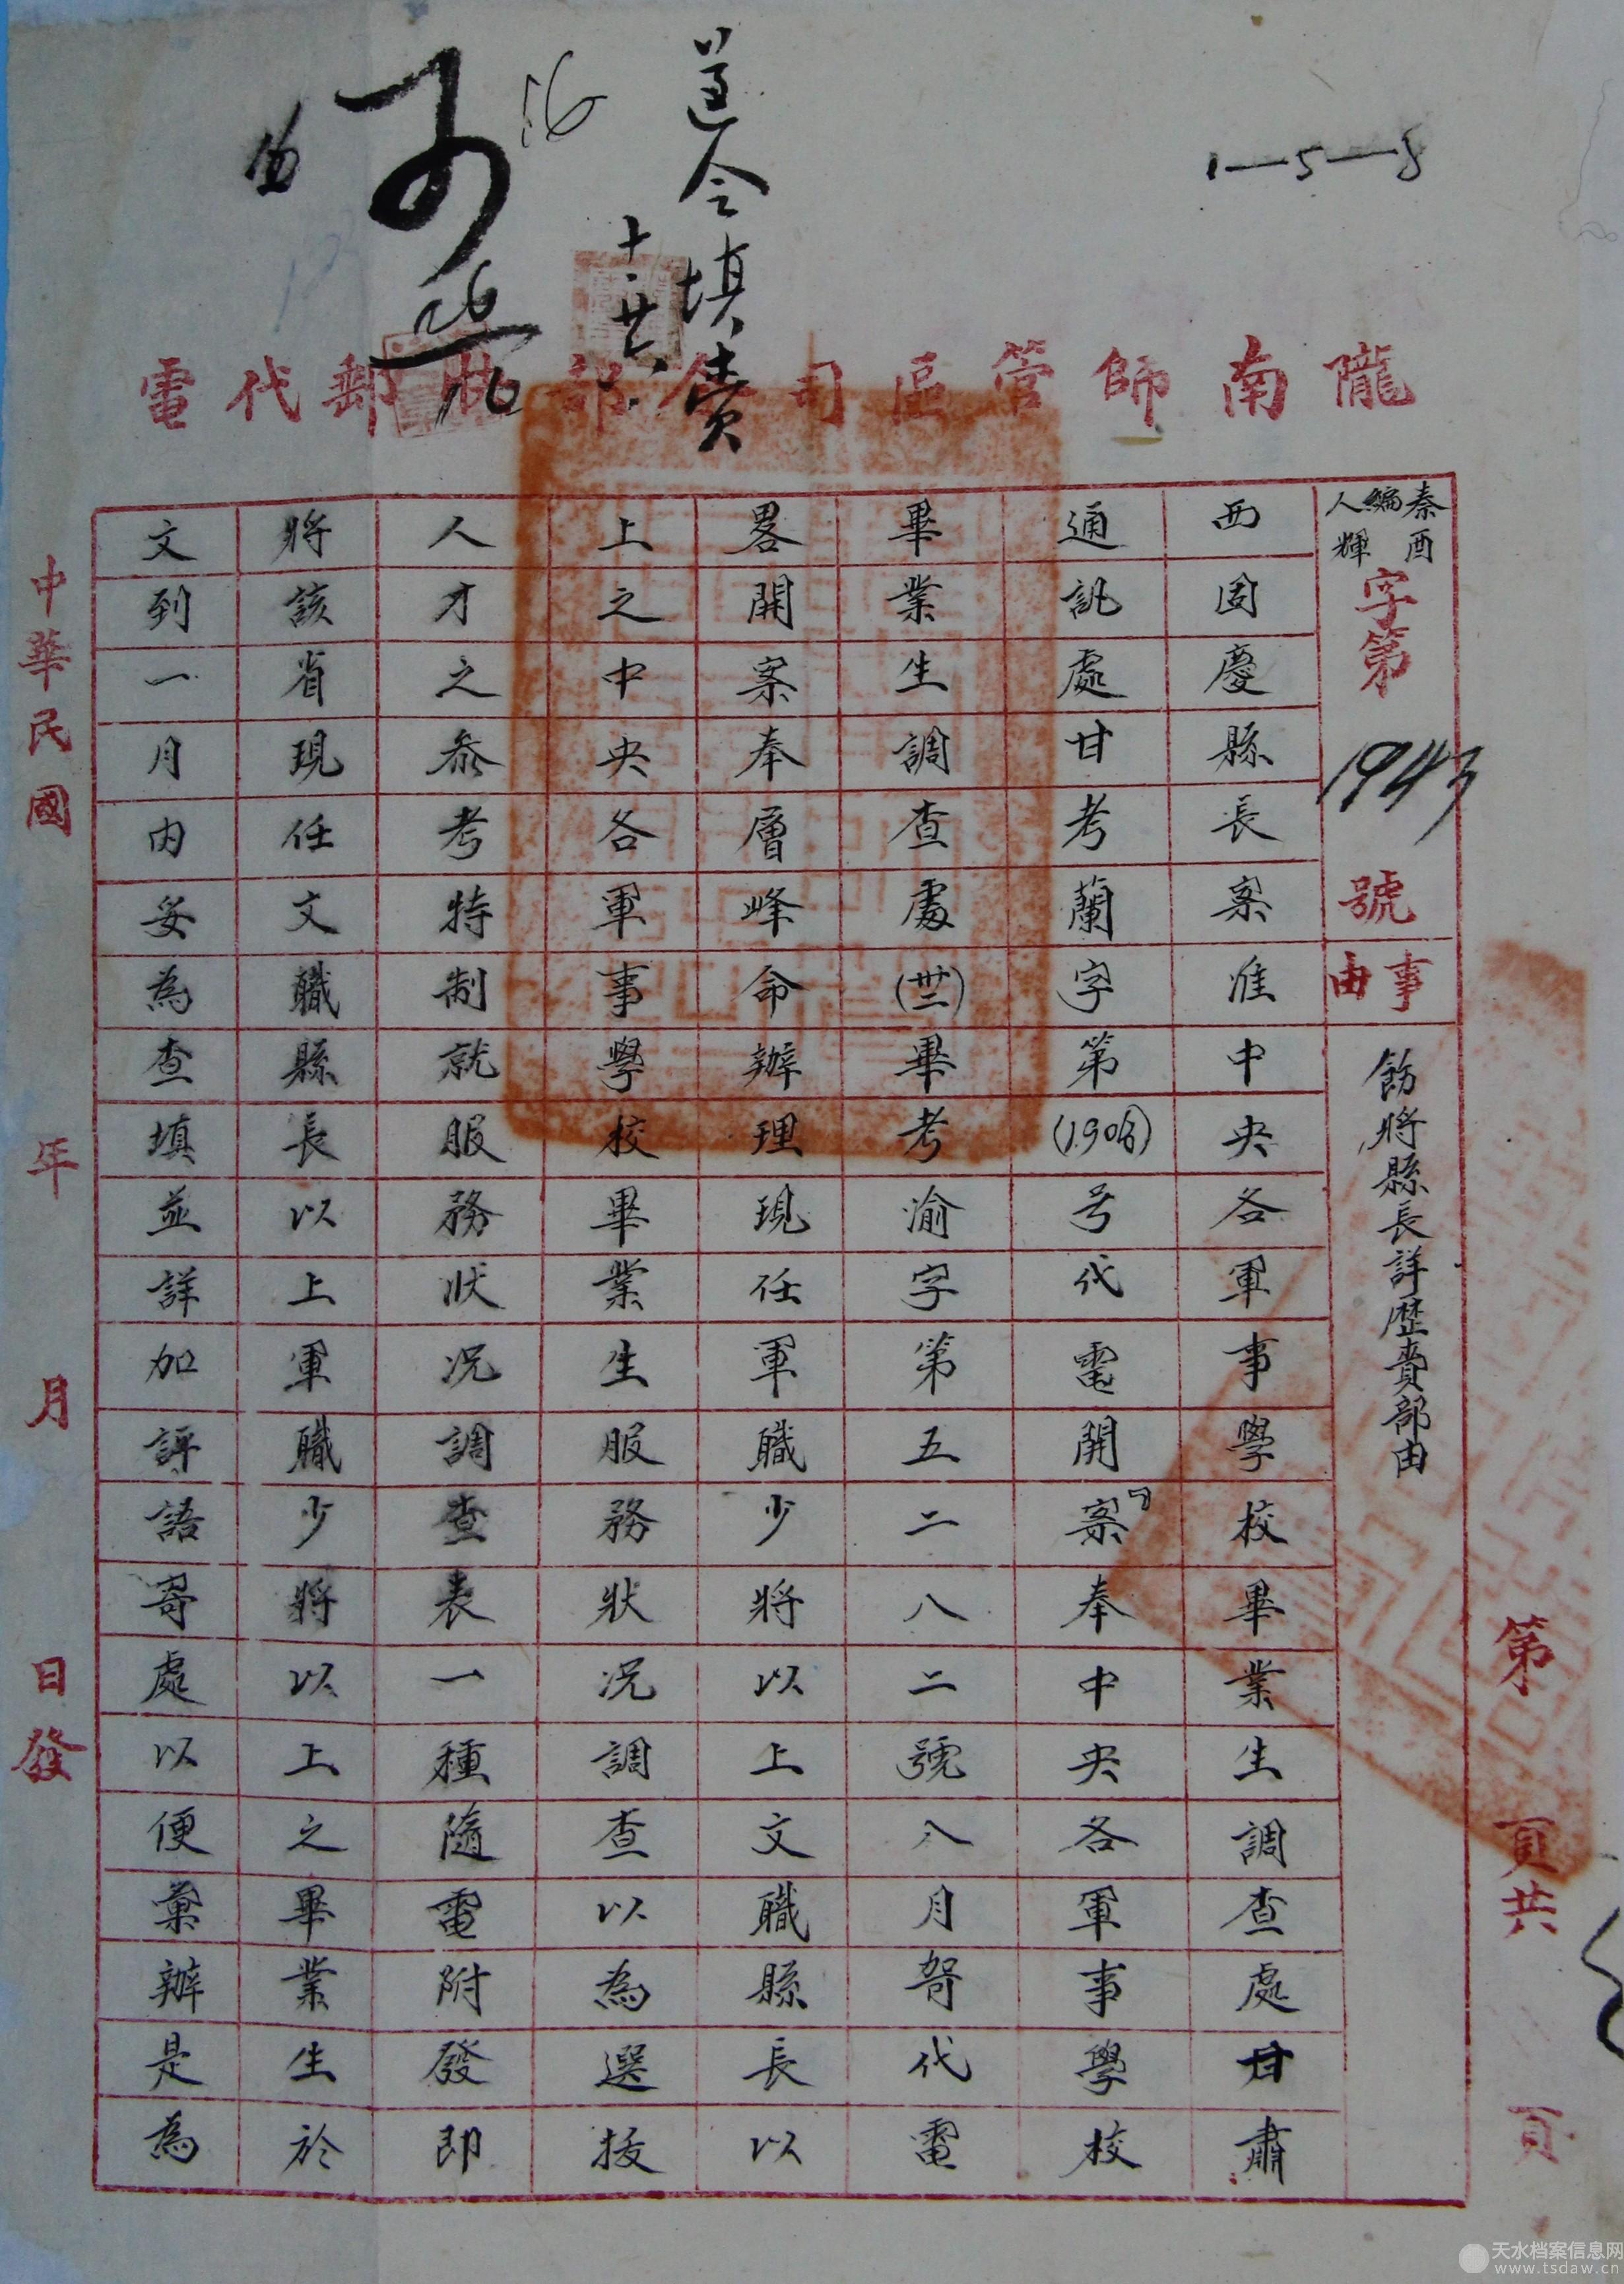 1—5—8
遵令填賫
十.廿六.
可
隴南師管區司令部快郵代電
秦酉
編
人輝
字第1943號
事由
飭將縣長詳歷賫部由
西固慶縣長案准中央各軍事學校畢業生調查處甘肅
通訊處甘考蘭字第(1906)号代電開案『奉中央各軍事學校
畢業生調查處(卅二)畢考渝字第五二八二號八月哿代電
畧開案奉層峰命辦理現任軍職少將以上文職縣長以
上之中央各軍事學校畢業生服務狀况調查以為選拔
人才之叅考特制就服務狀况調查表一種隨電附發即
將該省現任文職縣長以上軍職少將以上之畢業生於
文到一月內妥為查填並詳加評語寄處以便彙辦是為
中華民國 年 月 日發
第 頁共 頁
天水档案信息网
www.tsdaw.cn